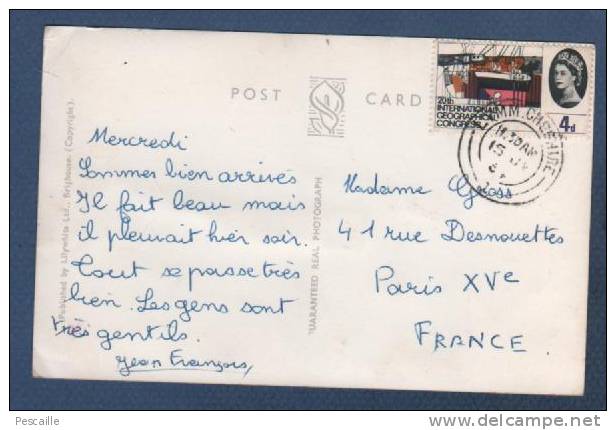 POST CARD
20th
INTERNATIONAL
GEOGRAPHICAL
CONGRESS
4d
CHESHIRE
11.30 AM
15
Published by Lilywhite Ltd., Brighouse. (Copyright).
GUARANTEED REAL PHOTOGRAPH
Mercredi
Sommes bien arrivés
Il fait beau mais
il pleuvait hier soir.
Tout se passe très
bien. Les gens sont
très gentils.
Jean François
Madame Gross
41 rue Desnouettes
Paris XVe
FRANCE
Pescaille
www.delcampe.net